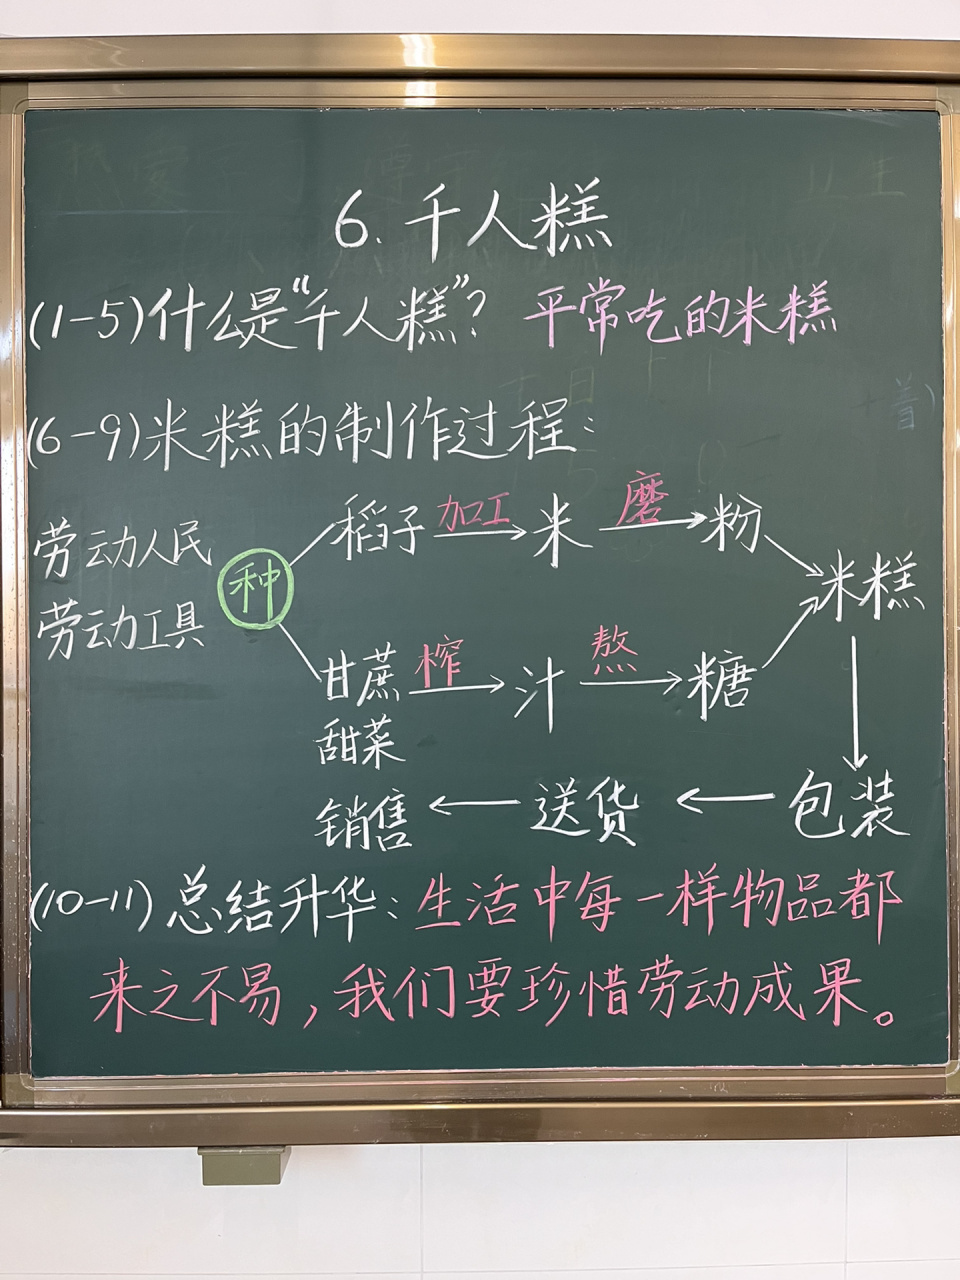 6. 千人糕
(1-5)什么是“千人糕”? 平常吃的米糕
(6-9)米糕的制作过程:
劳动人民
劳动工具
种
稻子 加工 米 磨 粉
米糕
甘蔗 榨 汁 熬 糖
甜菜
销售 送货 包装
(10-11)总结升华:生活中每一样物品都
来之不易,我们要珍惜劳动成果。